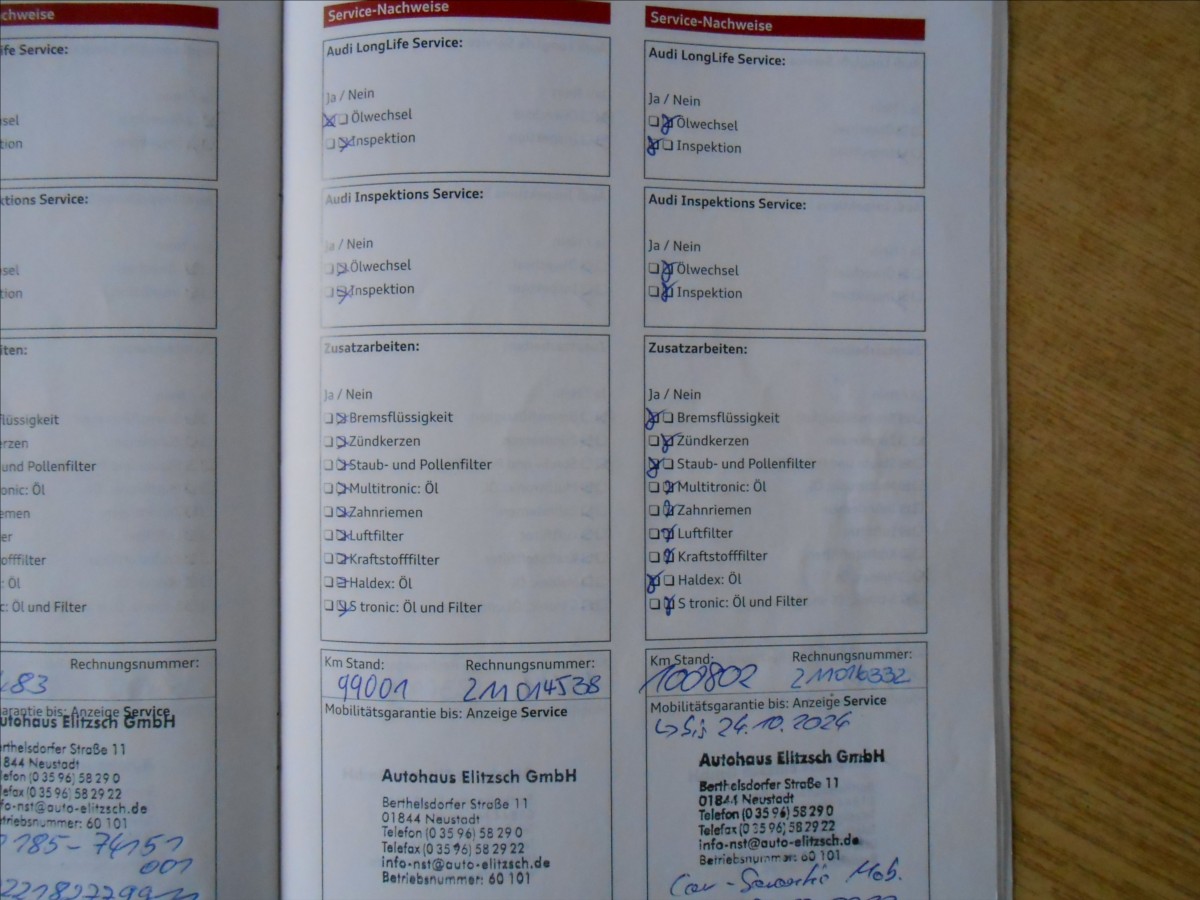 chweise
ife Service:
sel
ion
ktions Service:
sel
tion
iten:
flüssigkeit
erzen
und Pollenfilter
onic: Öl
emen
er
offfilter
: Öl
c: Öl und Filter
Rechnungsnummer:
483
garantie bis: Anzeige Service
utohaus Elitzsch GmbH
erthelsdorfer Straße 11
1844 Neustadt
elefon (0 35 96) 58 29 0
elefax (0 35 96) 58 29 22
fo-nst@auto-elitzsch.de
triebsnummer: 60 101
185-74151
001
Service-Nachweise
Audi LongLife Service:
Ja / Nein
Ölwechsel
Inspektion
Audi Inspektions Service:
Ja / Nein
Ölwechsel
Inspektion
Zusatzarbeiten:
Ja / Nein
Bremsflüssigkeit
Zündkerzen
Staub- und Pollenfilter
Multitronic: Öl
Zahnriemen
Luftfilter
Kraftstofffilter
Haldex: Öl
S tronic: Öl und Filter
Km Stand: Rechnungsnummer:
99001 211014538
Mobilitätsgarantie bis: Anzeige Service
Autohaus Elitzsch GmbH
Berthelsdorfer Straße 11
01844 Neustadt
Telefon (0 35 96) 58 29 0
Telefax (0 35 96) 58 29 22
info-nst@auto-elitzsch.de
Betriebsnummer: 60 101
Service-Nachweise
Audi LongLife Service:
Ja / Nein
Ölwechsel
Inspektion
Audi Inspektions Service:
Ja / Nein
Ölwechsel
Inspektion
Zusatzarbeiten:
Ja / Nein
Bremsflüssigkeit
Zündkerzen
Staub- und Pollenfilter
Multitronic: Öl
Zahnriemen
Luftfilter
Kraftstofffilter
Haldex: Öl
S tronic: Öl und Filter
Km Stand: Rechnungsnummer:
100802 211016332
Mobilitätsgarantie bis: Anzeige Service
↳ bis 24.10.2024
Autohaus Elitzsch GmbH
Berthelsdorfer Straße 11
01844 Neustadt
Telefon (0 35 96) 58 29 0
Telefax (0 35 96) 58 29 22
info-nst@auto-elitzsch.de
Betriebsnummer: 60 101
Mob.